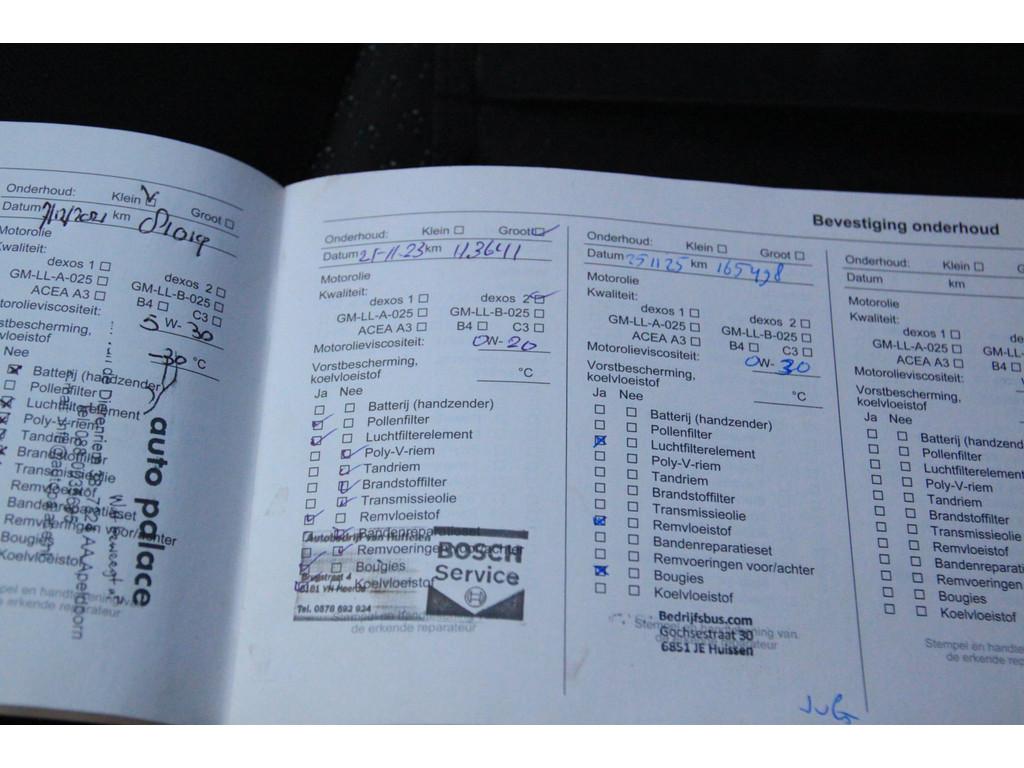 Onderhoud: Klein Groot
Datum 7/12/2021 km 81019
Motorolie
Kwaliteit:
dexos 1 dexos 2
GM-LL-A-025 GM-LL-B-025
ACEA A3 B4 C3
5 W- 30
-30 °C
Nee
Batterij (handzender)
Pollenfilter
Luchtfilterelement
Poly-V-riem
Tandriem
Brandstoffilter
Transmissieolie
Remvloeistof
Bandenreparatieset
Remvoeringen voor/achter
Bougies
Koelvloeistof
auto palace
Apeldoorn
erkende reparateur
Onderhoud: Klein Groot
Datum 21-11-23 km 113641
Motorolie
Kwaliteit:
dexos 1 dexos 2
GM-LL-A-025 GM-LL-B-025
ACEA A3 B4 C3
Motorolieviscositeit: 0W- 20
Vorstbescherming,
koelvloeistof °C
Ja Nee
Batterij (handzender)
Pollenfilter
Luchtfilterelement
Poly-V-riem
Tandriem
Brandstoffilter
Transmissieolie
Remvloeistof
Bandenreparatieset
Remvoeringen voor/achter
Bougies
Koelvloeistof
Autobedrijf van
BOSCH
Service
Tel. 0578 692 924
de erkende reparateur
Bevestiging onderhoud
Onderhoud: Klein Groot
Datum 25 11 25 km 165498
Motorolie
Kwaliteit:
dexos 1 dexos 2
GM-LL-A-025 GM-LL-B-025
ACEA A3 B4 C3
Motorolieviscositeit: 0W- 30
Vorstbescherming,
koelvloeistof °C
Ja Nee
Batterij (handzender)
Pollenfilter
Luchtfilterelement
Poly-V-riem
Tandriem
Brandstoffilter
Transmissieolie
Remvloeistof
Bandenreparatieset
Remvoeringen voor/achter
Bougies
Koelvloeistof
Bedrijfsbus.com
Gochsestraat 30
6851 JE Huissen
JvG
Onderhoud: Klein G
Datum km
Motorolie
Kwaliteit:
dexos 1 de
GM-LL-A-025 GM-LL-
ACEA A3 B4
Motorolieviscositeit:
Vorstbescherming,
koelvloeistof
Ja Nee
Batterij (handzend
Pollenfilter
Luchtfilterelement
Poly-V-riem
Tandriem
Brandstoffilter
Transmissieolie
Remvloeistof
Bandenreparatie
Remvoeringen
Bougies
Koelvloeistof
Stempel en handte
de erkende rep